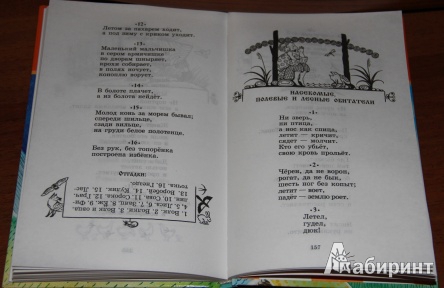 -12-
Летом за пахарем ходит,
а под зиму с криком уходит.
-13-
Маленький мальчишка
в сером армячишке
по дворам шныряет,
крохи собирает,
в полях ночует,
коноплю ворует.
-14-
В болоте плачет,
а из болота нейдёт.
-15-
Молод конь за морем бывал;
спереди шильце,
сзади вильце,
на груди белое полотенце.
-16-
Без рук, без топорёнка
построена избёнка.
Отгадки:
1. Волк. 2. Волки. 3. Волк и овца.
4, 5. Лиса. 6. Заяц. 7. Еж. 8. Фи-
лин. 9. 10. Сова. 11. Сорока. 12. Грач.
13. Воробей. 14. Кулик. 15. Лас-
точка. 16. Гнездо.
НАСЕКОМЫЕ,
ПОЛЕВЫЕ И ЛЕСНЫЕ ОБИТАТЕЛИ
-1-
Ни зверь,
ни птица,
а нос как спица,
летит — кричит,
сядет — молчит.
Кто его убьёт,
свою кровь прольёт.
-2-
Чёрен, да не ворон,
рогат, да не бык,
шесть ног без копыт;
летит — воет,
падёт — землю роет.
-3-
Летел,
гудел,
дюк!
337
Лабиринт